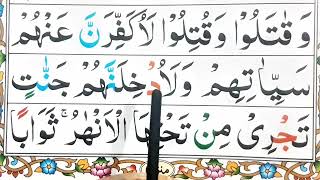 وَقٰتَلُوْا وَقُتِلُوْا لَاُكَفِّرَنَّ عَنْهُمْ
سَيِّاٰتِهِمْ وَلَاُدْخِلَنَّهُمْ جَنّٰتٍ
تَجْرِىْ مِنْ تَحْتِهَا الْاَنْهٰرُ ۚ ثَوَابًا